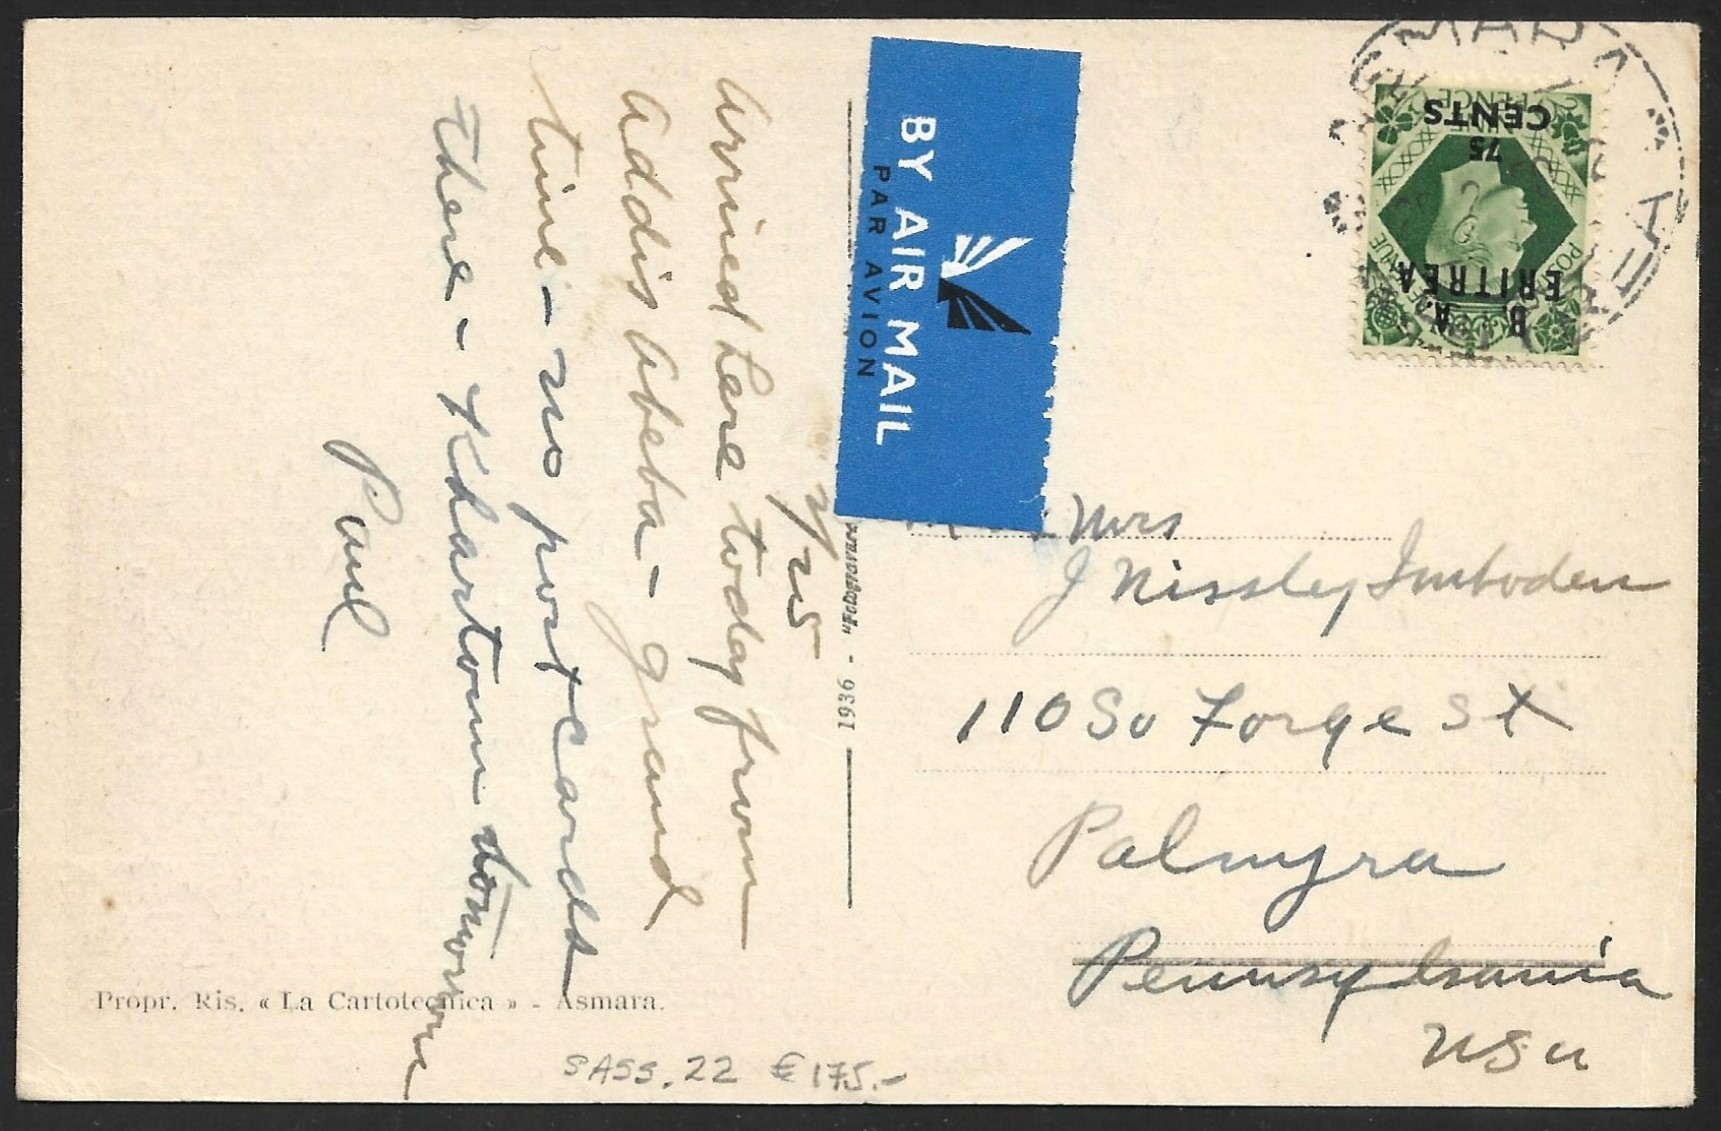 2/25
Arrived here today from
Addis Abeba - grand
time - no postcards
there - Khartoum tomorrow
Paul
1936 - "Fotogravura
BY AIR MAIL
PAR AVION
ASMARA
ERITREA
75
CENTS
NINE PENCE
POSTAGE
REVENUE
B. A.
ERITREA
Mrs
J Nissley Imboden
110 So Forge St
Palmyra
Pennsylvania
USA
Propr. Ris. « La Cartotecnica » - Asmara.
SASS. 22 € 175.-